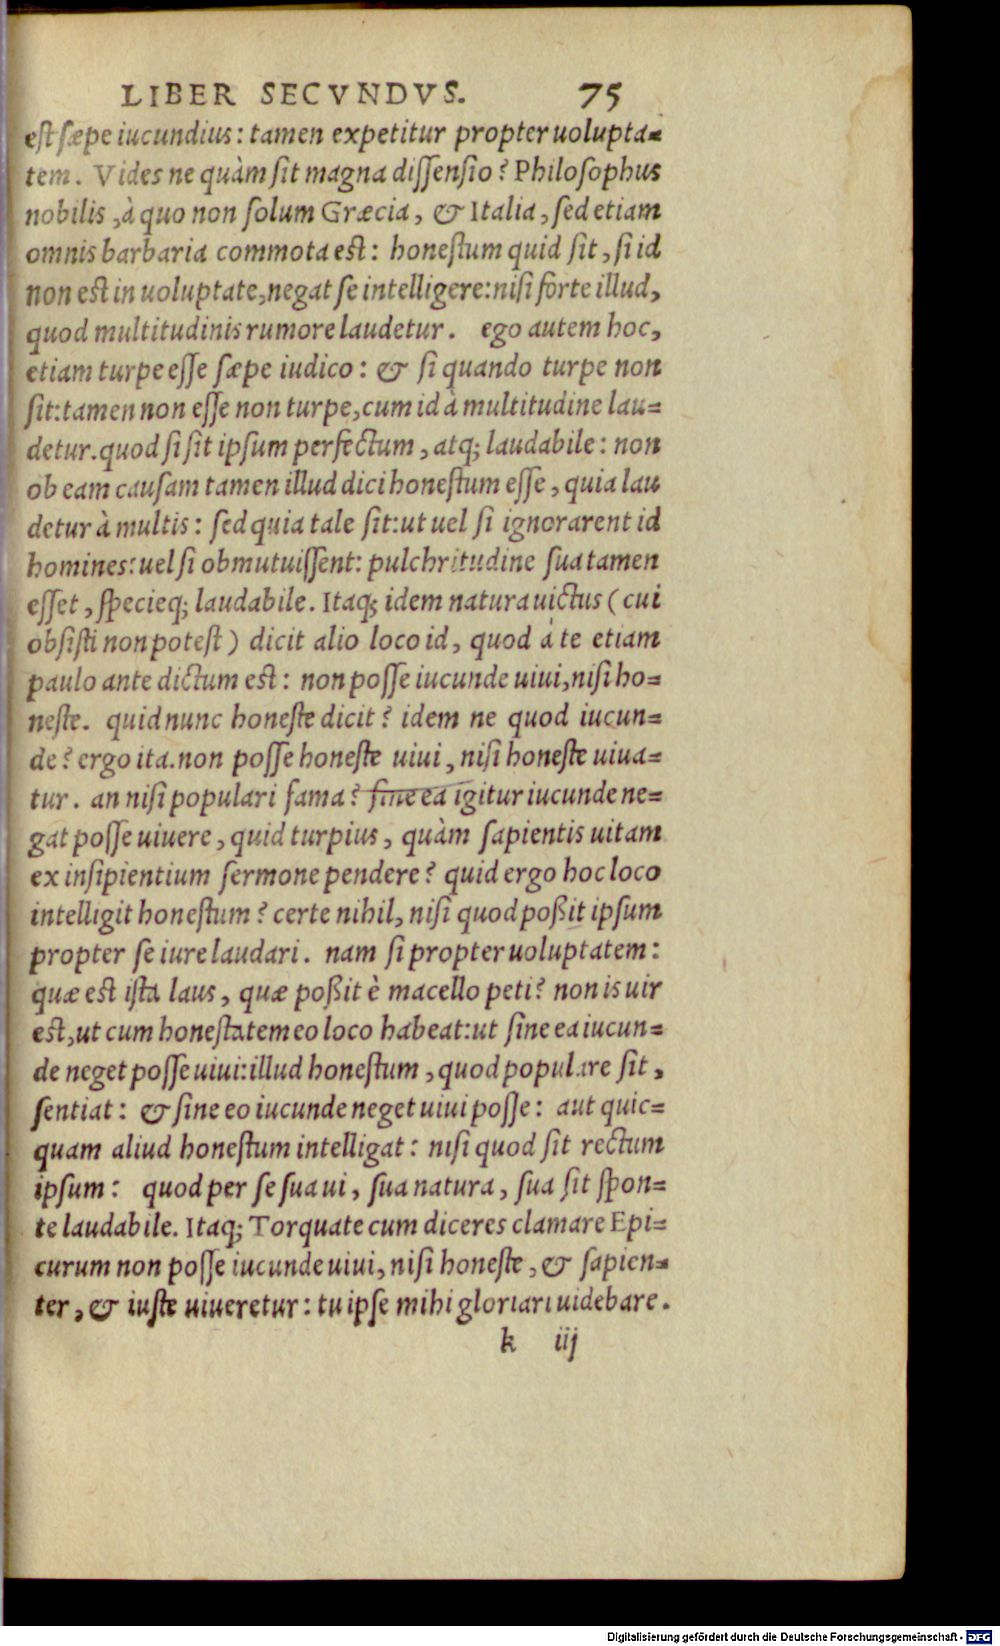 LIBER SECVNDVS. 75
est sæpe iucundius: tamen expetitur propter uolupta=
tem. Vides ne quàm sit magna dissensio? Philosophus
nobilis, à quo non solum Græcia, & Italia, sed etiam
omnis barbaria commota est: honestum quid sit, si id
non est in uoluptate, negat se intelligere: nisi forte illud,
quod multitudinis rumore laudetur. ego autem hoc,
etiam turpe esse sæpe iudico: & si quando turpe non
sit: tamen non esse non turpe, cum id à multitudine lau=
detur. quod si sit ipsum perfectum, atq; laudabile: non
ob eam causam tamen illud dici honestum esse, quia lau
detur à multis: sed quia tale sit: ut uel si ignorarent id
homines: uel si obmutuissent: pulchritudine sua tamen
esset, specieq; laudabile. Itaq; idem natura uictus (cui
obsisti non potest) dicit alio loco id, quod à te etiam
paulo ante dictum est: non posse iucunde uiui, nisi ho=
neste. quid nunc honeste dicit? idem ne quod iucun=
de? ergo ita. non posse honeste uiui, nisi honeste uiua=
tur. an nisi populari fama? sine ea igitur iucunde ne=
gat posse uiuere, quid turpius, quàm sapientis uitam
ex insipientium sermone pendere? quid ergo hoc loco
intelligit honestum? certe nihil, nisi quod poßit ipsum
propter se iure laudari. nam si propter uoluptatem:
quæ est ista laus, quæ poßit è macello peti? non is uir
est, ut cum honestatem eo loco habeat: ut sine ea iucun=
de neget posse uiui: illud honestum, quod populare sit,
sentiat: & sine eo iucunde neget uiui posse: aut quic=
quam aliud honestum intelligat: nisi quod sit rectum
ipsum: quod per se sua ui, sua natura, sua sit spon=
te laudabile. Itaq; Torquate cum diceres clamare Epi=
curum non posse iucunde uiui, nisi honeste, & sapien=
ter, & iuste uiueretur: tu ipse mihi gloriari uidebare.
k iij
Digitalisierung gefördert durch die Deutsche Forschungsgemeinschaft - DFG